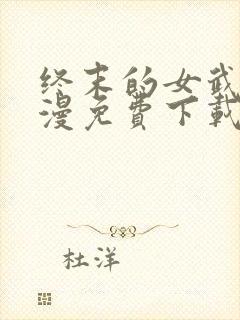 终末的女武
漫免費下載
杜洋